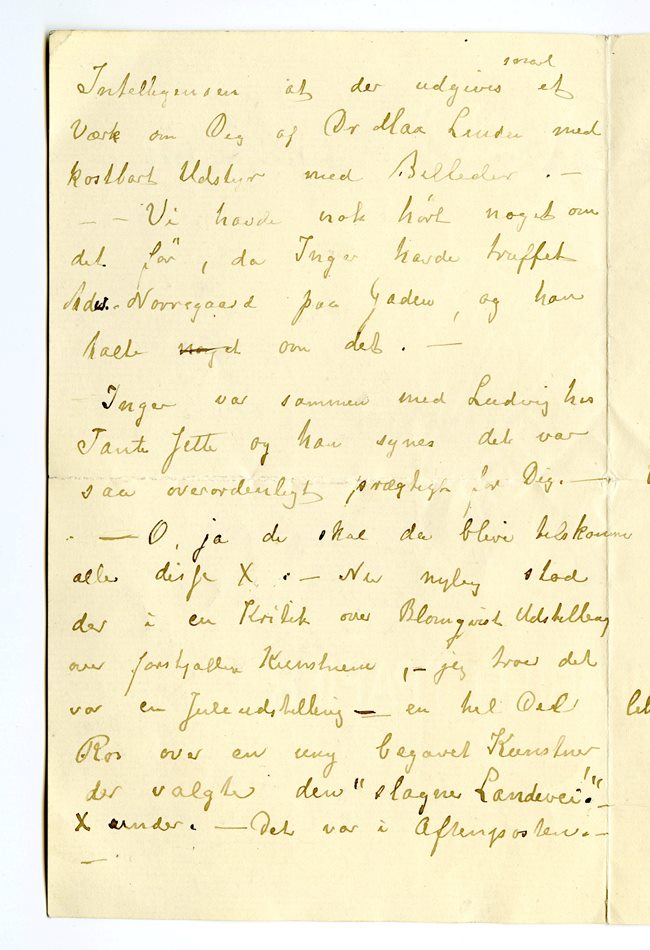 snart
Intelligensen at der udgives et
Værk om Dig af Dr Max Linde med
kostbart Udstyr med Billeder . –
– – Vi havde nok hørt noget om
det før, da Inger havde truffet
Nørregaard paa Gaden, og han
talte noget om det . –
Inger var sammen med Ludvig hos
Tante Jette og han synes det var
saa overordenligt prægtigt for Dig. –
– O, ja de skal da blive tilskamme
alle disse X . – Nu nylig stod
der i en Kritik over Blomqvist Udstilling
over forskjellige Kunstnere , – jeg troer det
var en Juleudstilling – en hel Del
Ros over en ung begavet Kunstner
der valgte den "slagne Landevei!"
X ander. – Det var i Aftenposten. –
–